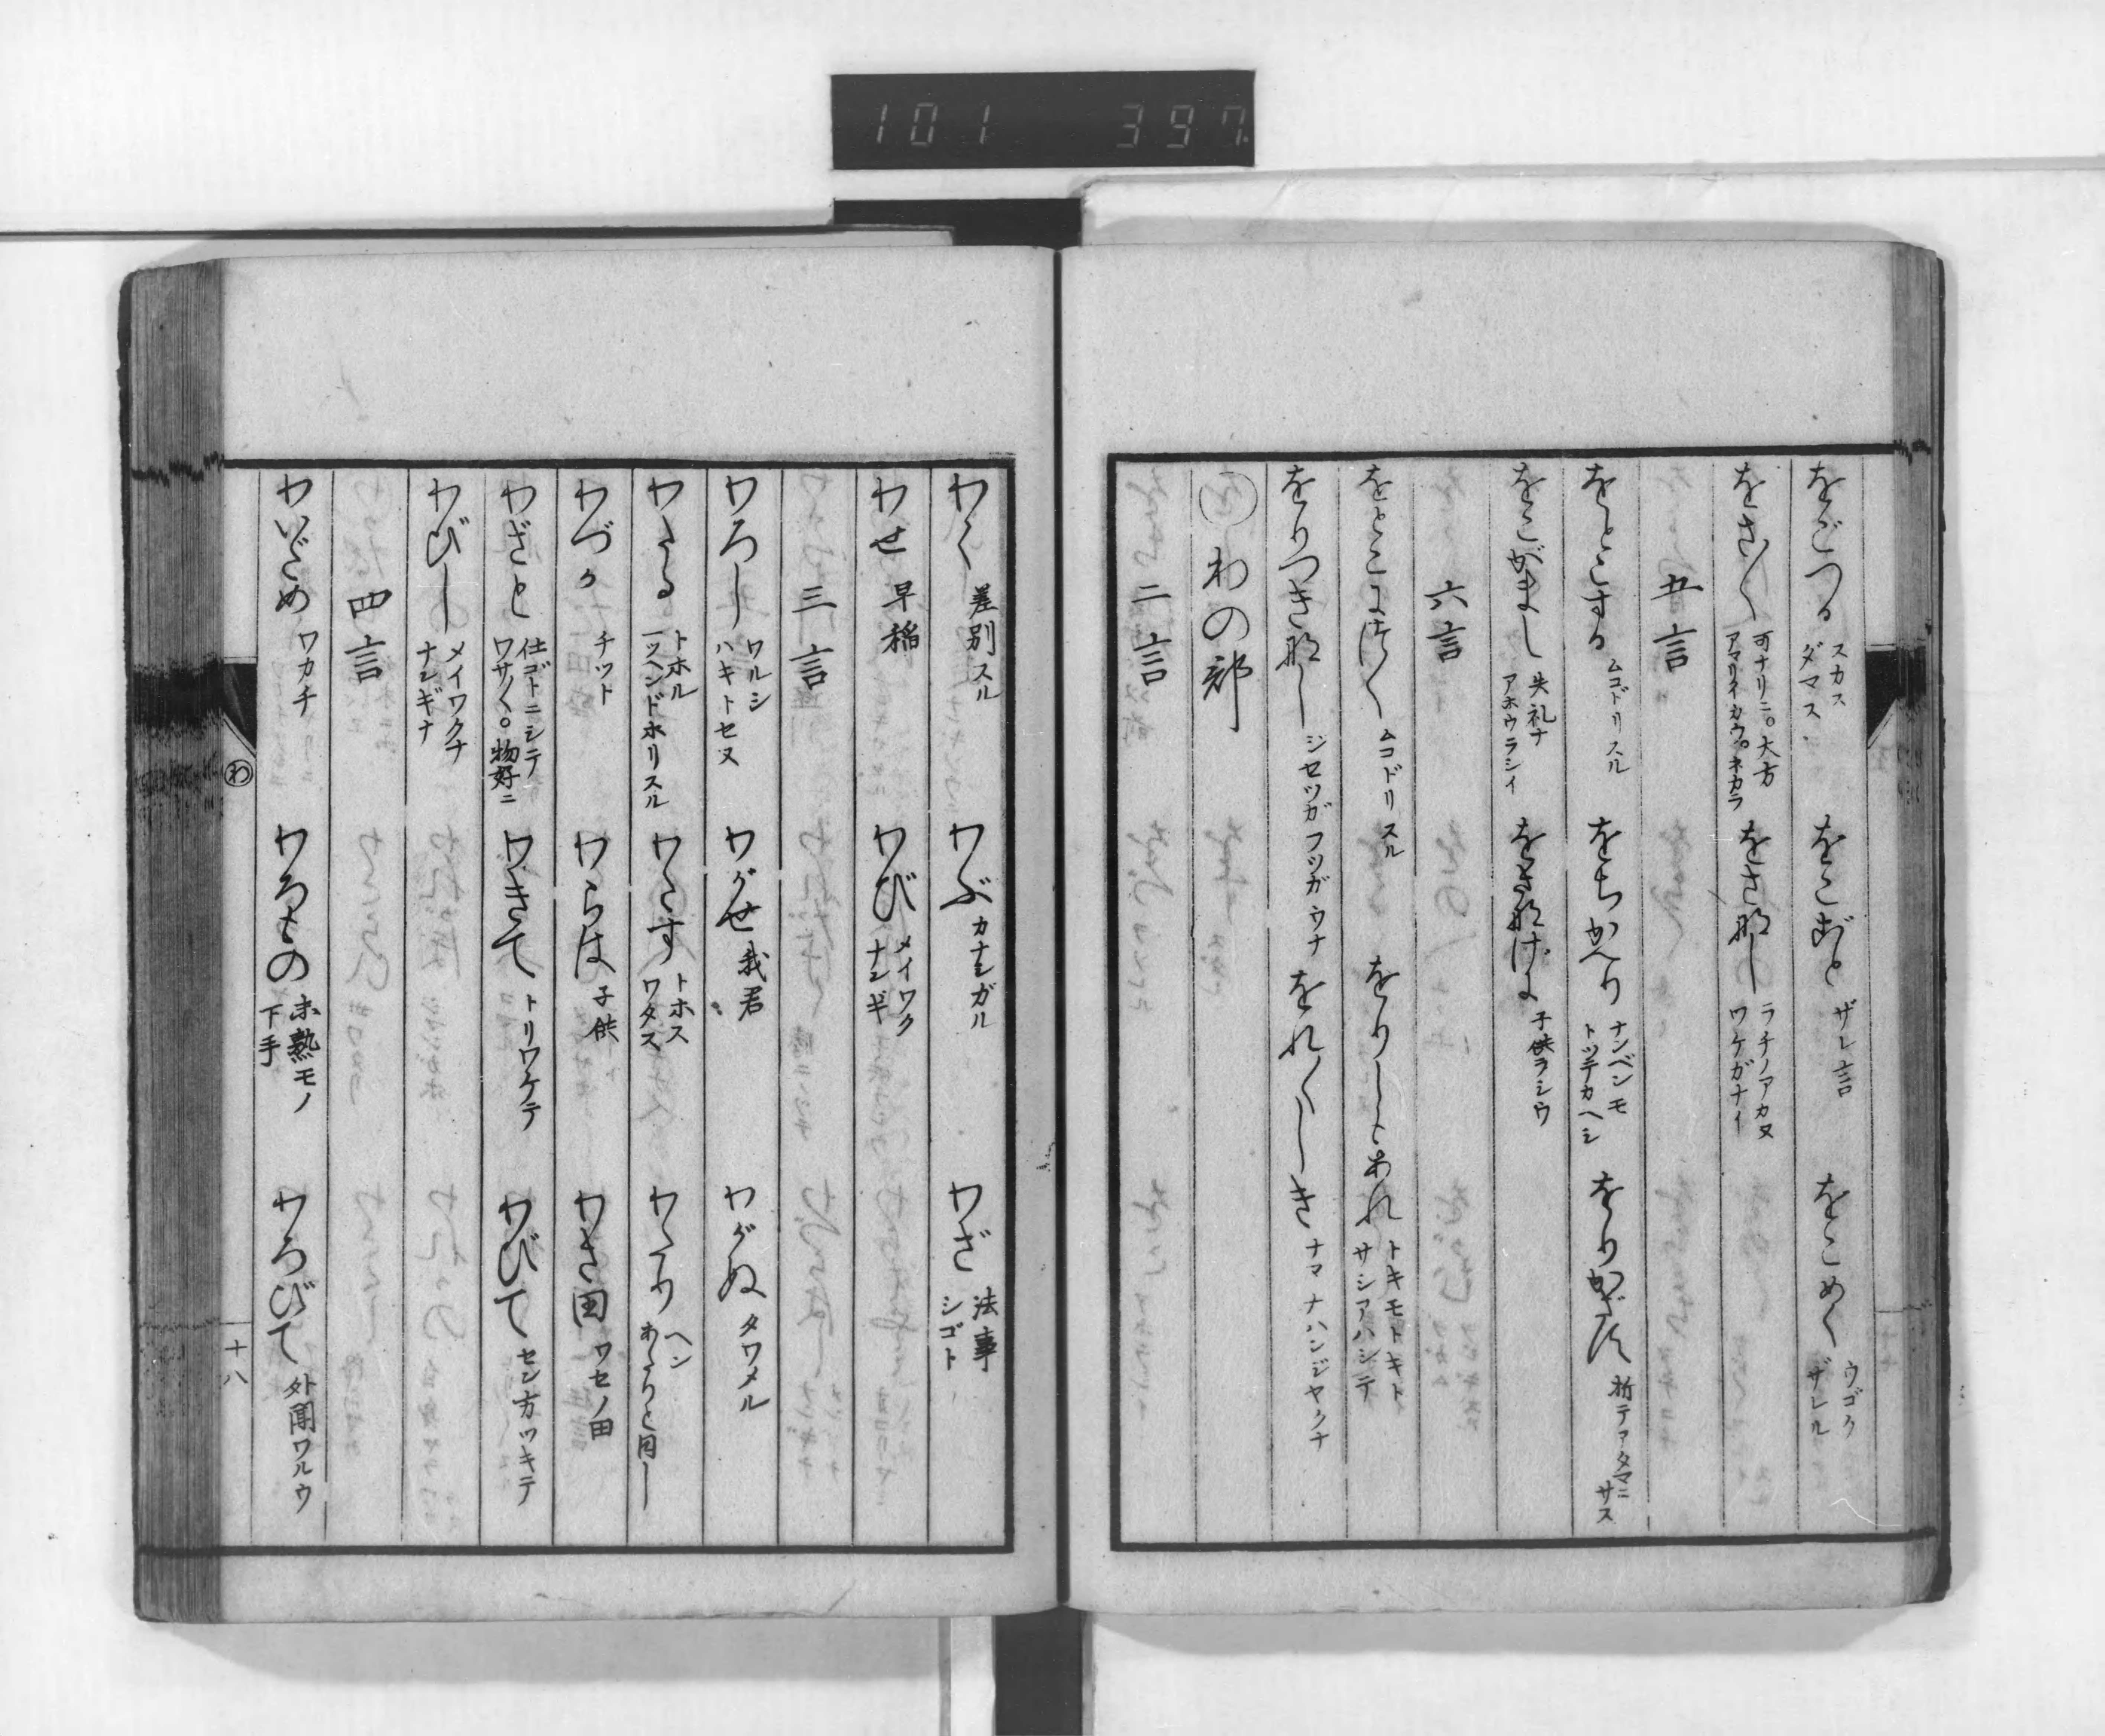 101 397
をごつる スカス ダマス をこごと ザレ言 をこめく ウゴク ザレル
をさ〱 可ナリニ。大方 アマリイカウ。ネカラ をさなし ラチノアカヌ ワケガナイ
五言
をとこする ムコドリスル をちかへり ナンベンモ トツテカヘシ をりかざす 折テアタマニサス
をこがまし 失礼ナ アホウラシイ をさなげに 子供ラシウ
六言
ムコドリスル をりしもあれ トキモトキト サシアハシテ
をりつきなし ジセツガフツガウナ をれ〱しき ナマナハンジヤクナ
わの部
二言
わく 差別スル わぶ カナシガル わざ 法事 シゴト
わせ 早稲 わび メイワク ナンギ
三言
わろし ワルシ ハキトセヌ わがせ 我君 わがぬ タワメル
わたる トホル 一ツヘンドホリスル わたす トホス ワタス わたり ヘン あたりと同し
わづか チツト わらは 子供 わさ田 ワセノ田
わざと 仕ゴトニシテ ワサ〱。物好ニ わきて トリワケテ わびて セン方ツキテ
わびし メイワクナ ナンギナ
四言
わいだめ ワカチ わろもの 未熟モノ 下手 わろびて 外聞ワルウ
わ
十八